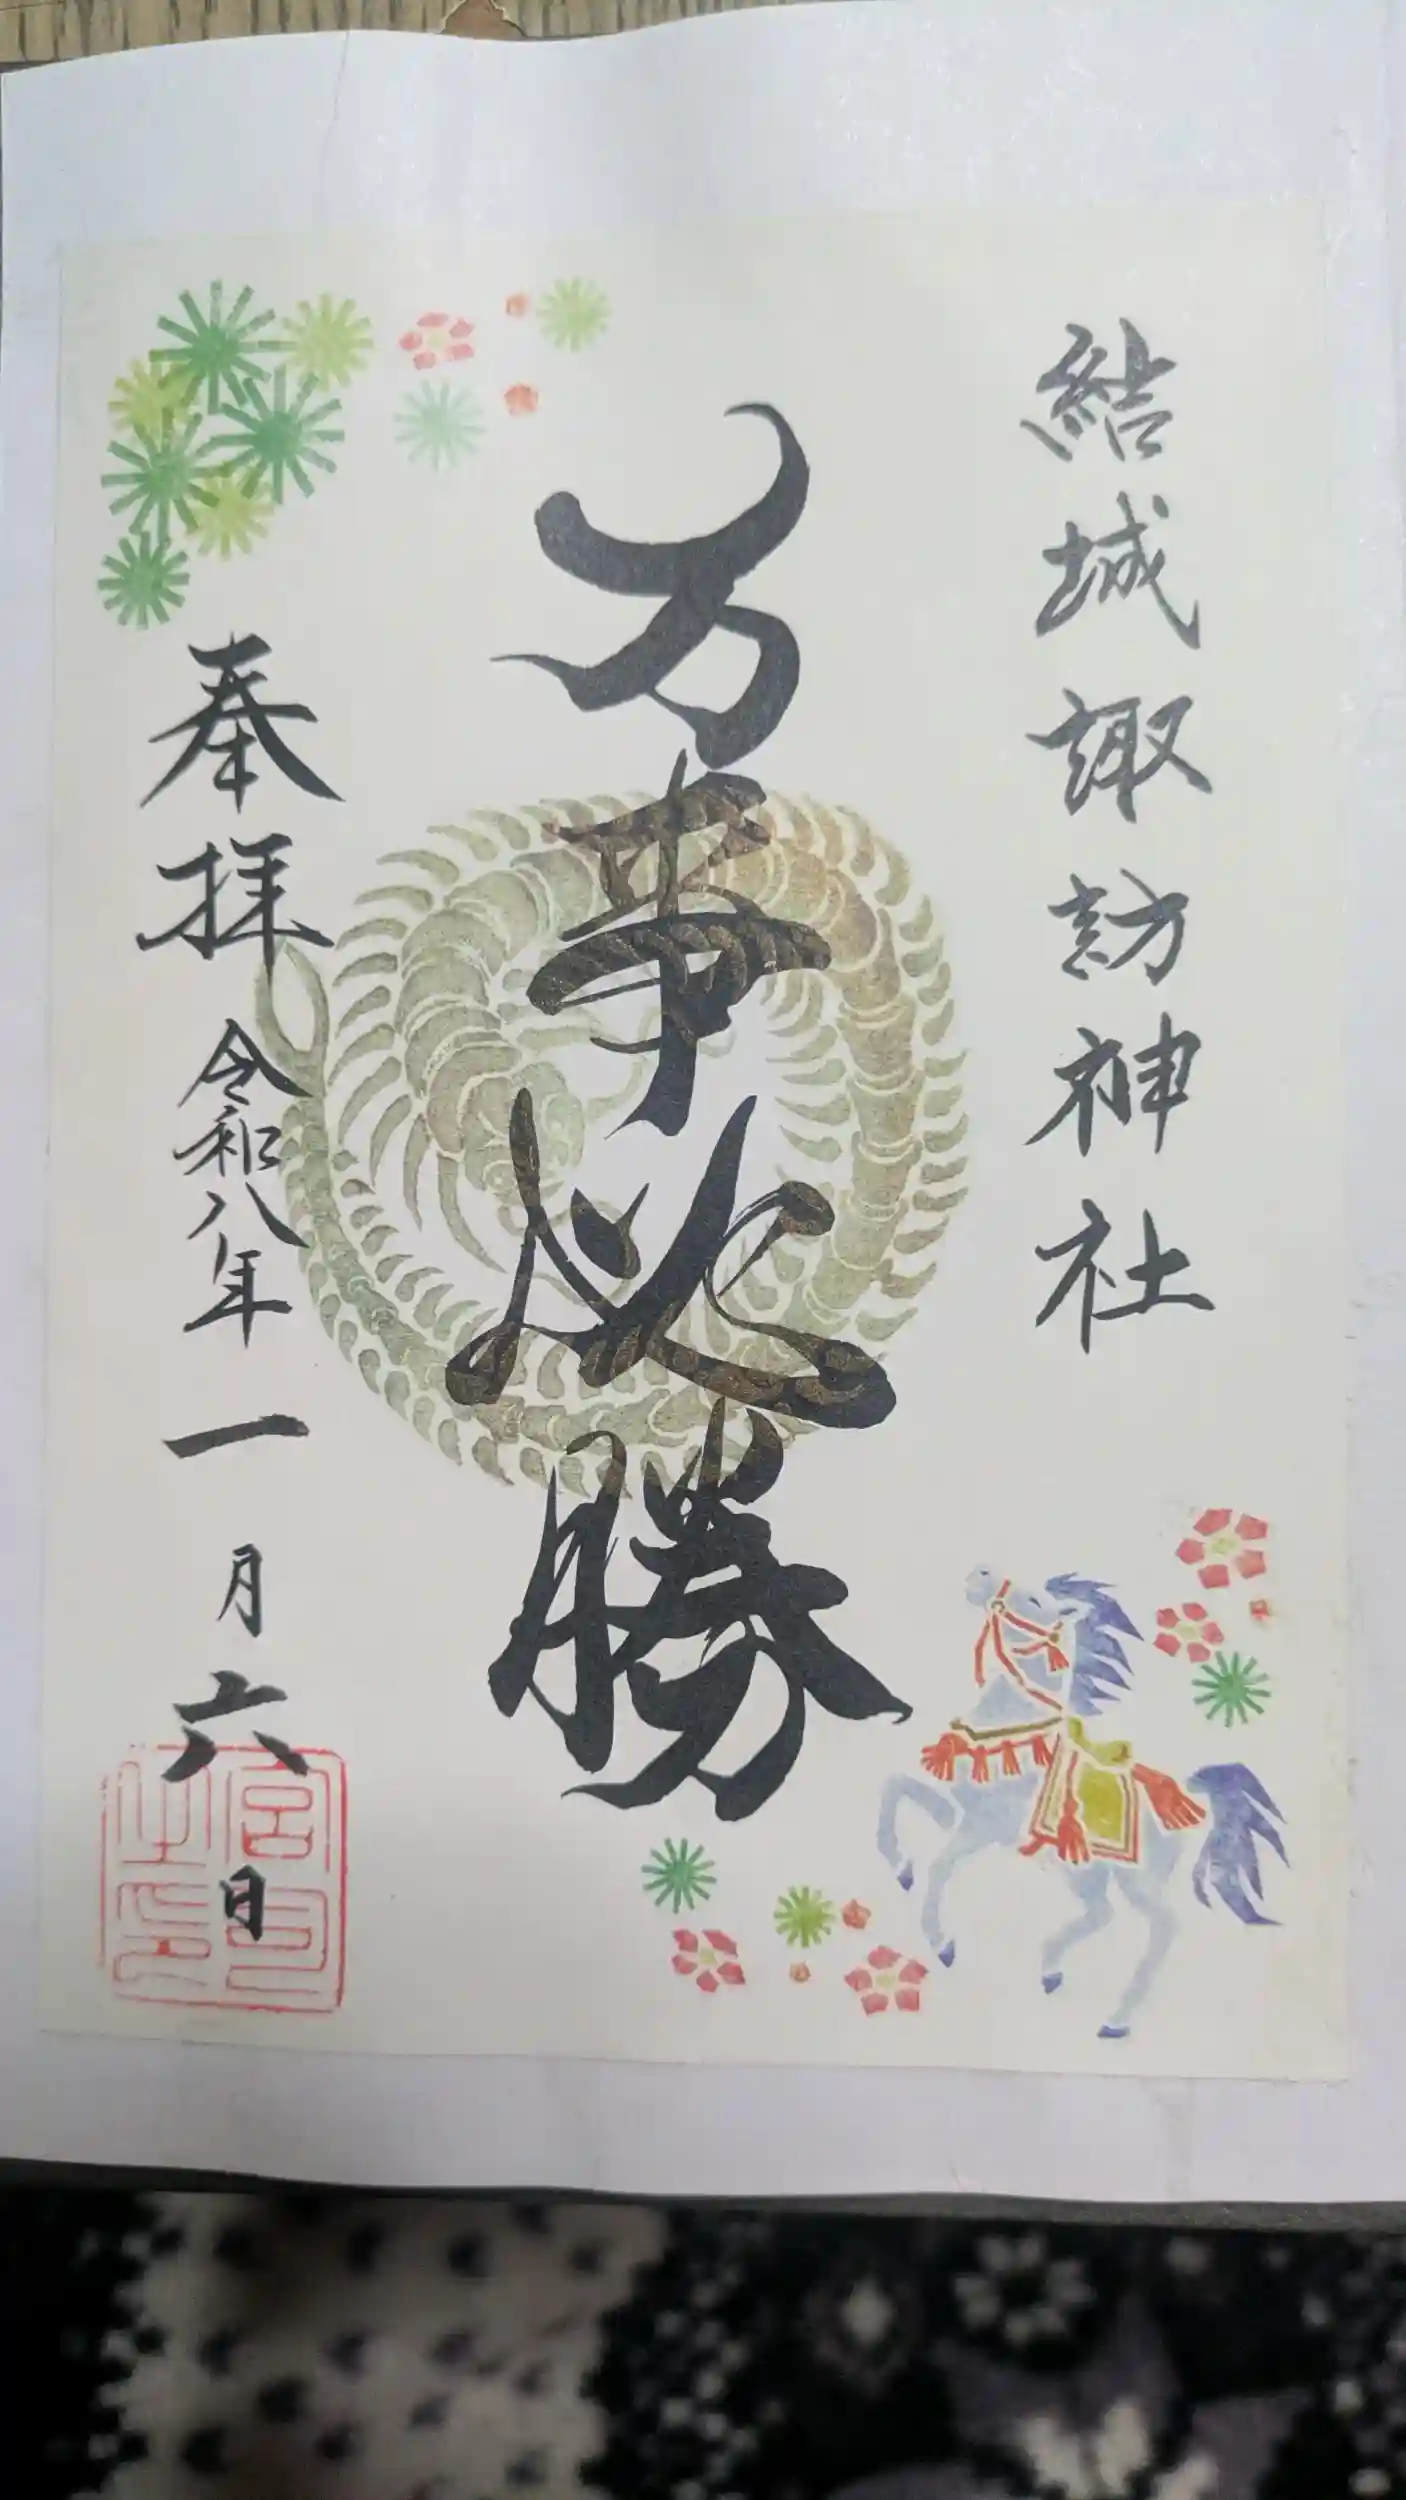 結城諏訪神社
万事必勝
奉拝
令和八年
一月六日
宮司之印